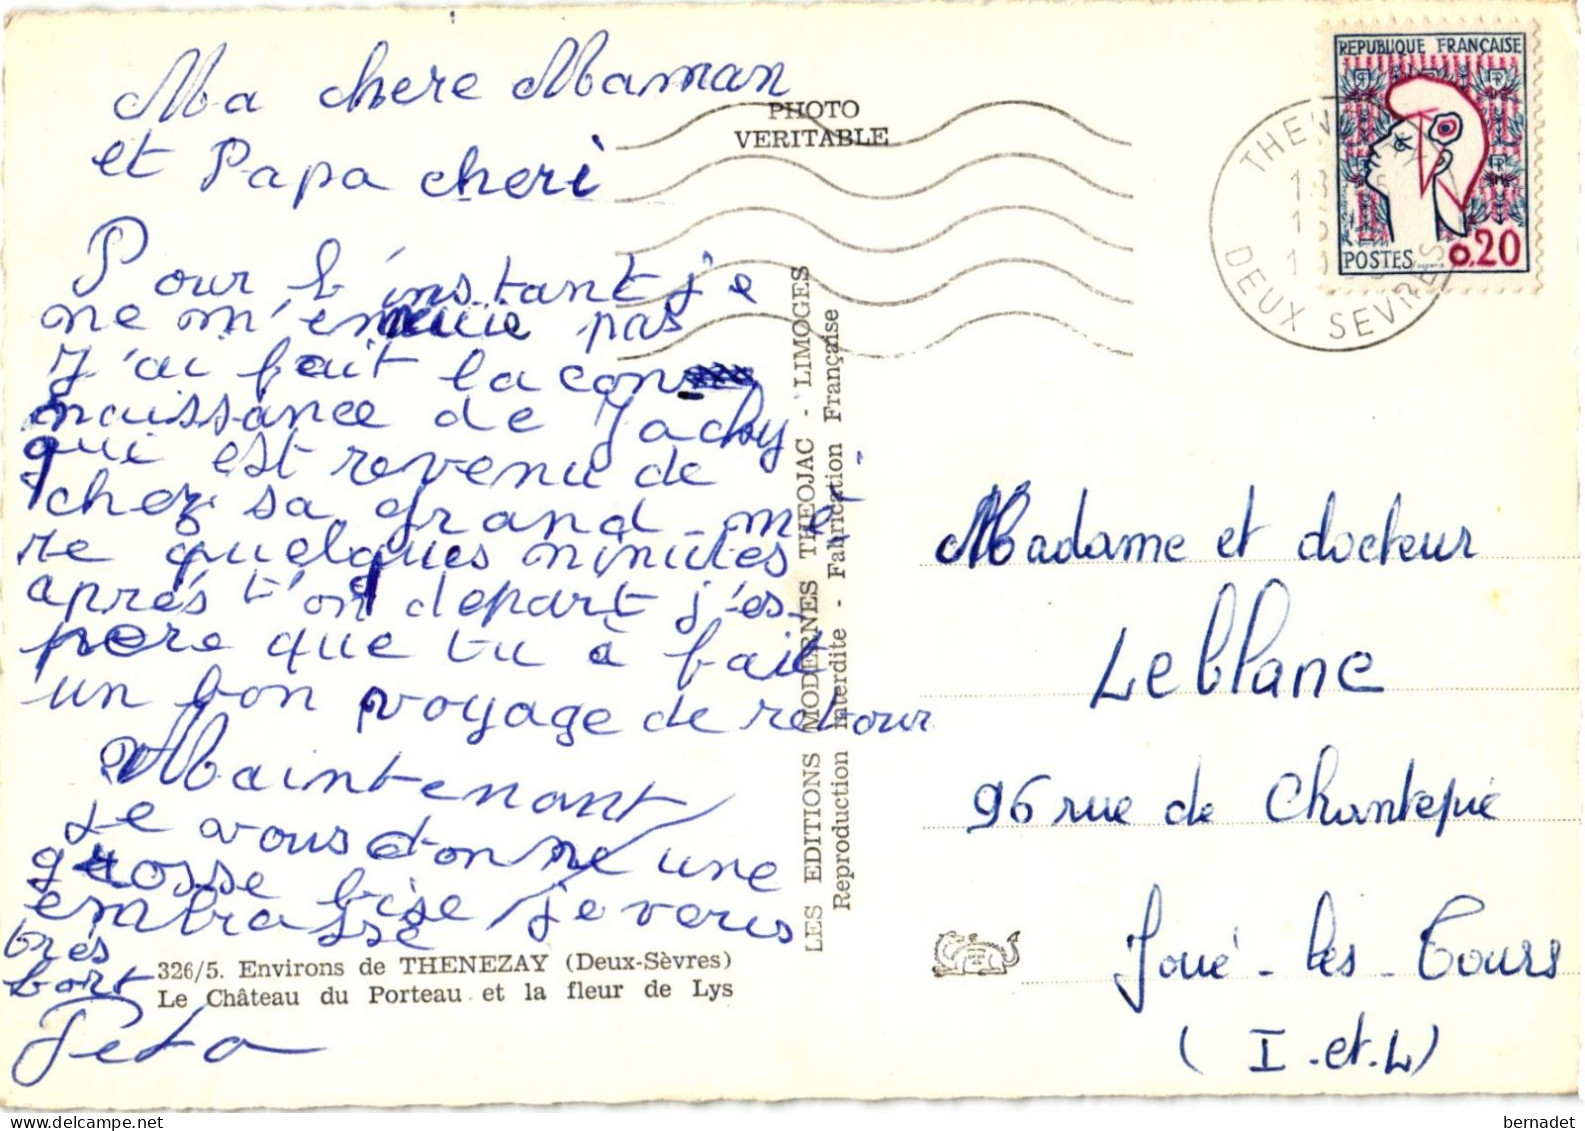 Ma chere Maman
et Papa cheri
Pour l'instant j'e
ne m'ennuie pas
J'ai fait la con
naissance de Jacky
qui est revenu de
chez sa grand-mè-
re quelques minutes
après t'on depart j'es-
pere que tu à fait
un bon voyage de retour
Maintenant
je vous donne une
grosse bise je vous
embrasse
très
fort
PHOTO
VERITABLE
LES EDITIONS MODERNES THEOJAC - LIMOGES
Reproduction interdite - Fabrication Française
326/5. Environs de THENEZAY (Deux-Sèvres)
Le Château du Porteau et la fleur de Lys
REPUBLIQUE FRANÇAISE
POSTES 0,20
THENEZAY
DEUX SEVRES
Madame et docteur
Leblanc
96 rue de Chantepie
Joué-les-Tours
(I.et.L)
bernadet